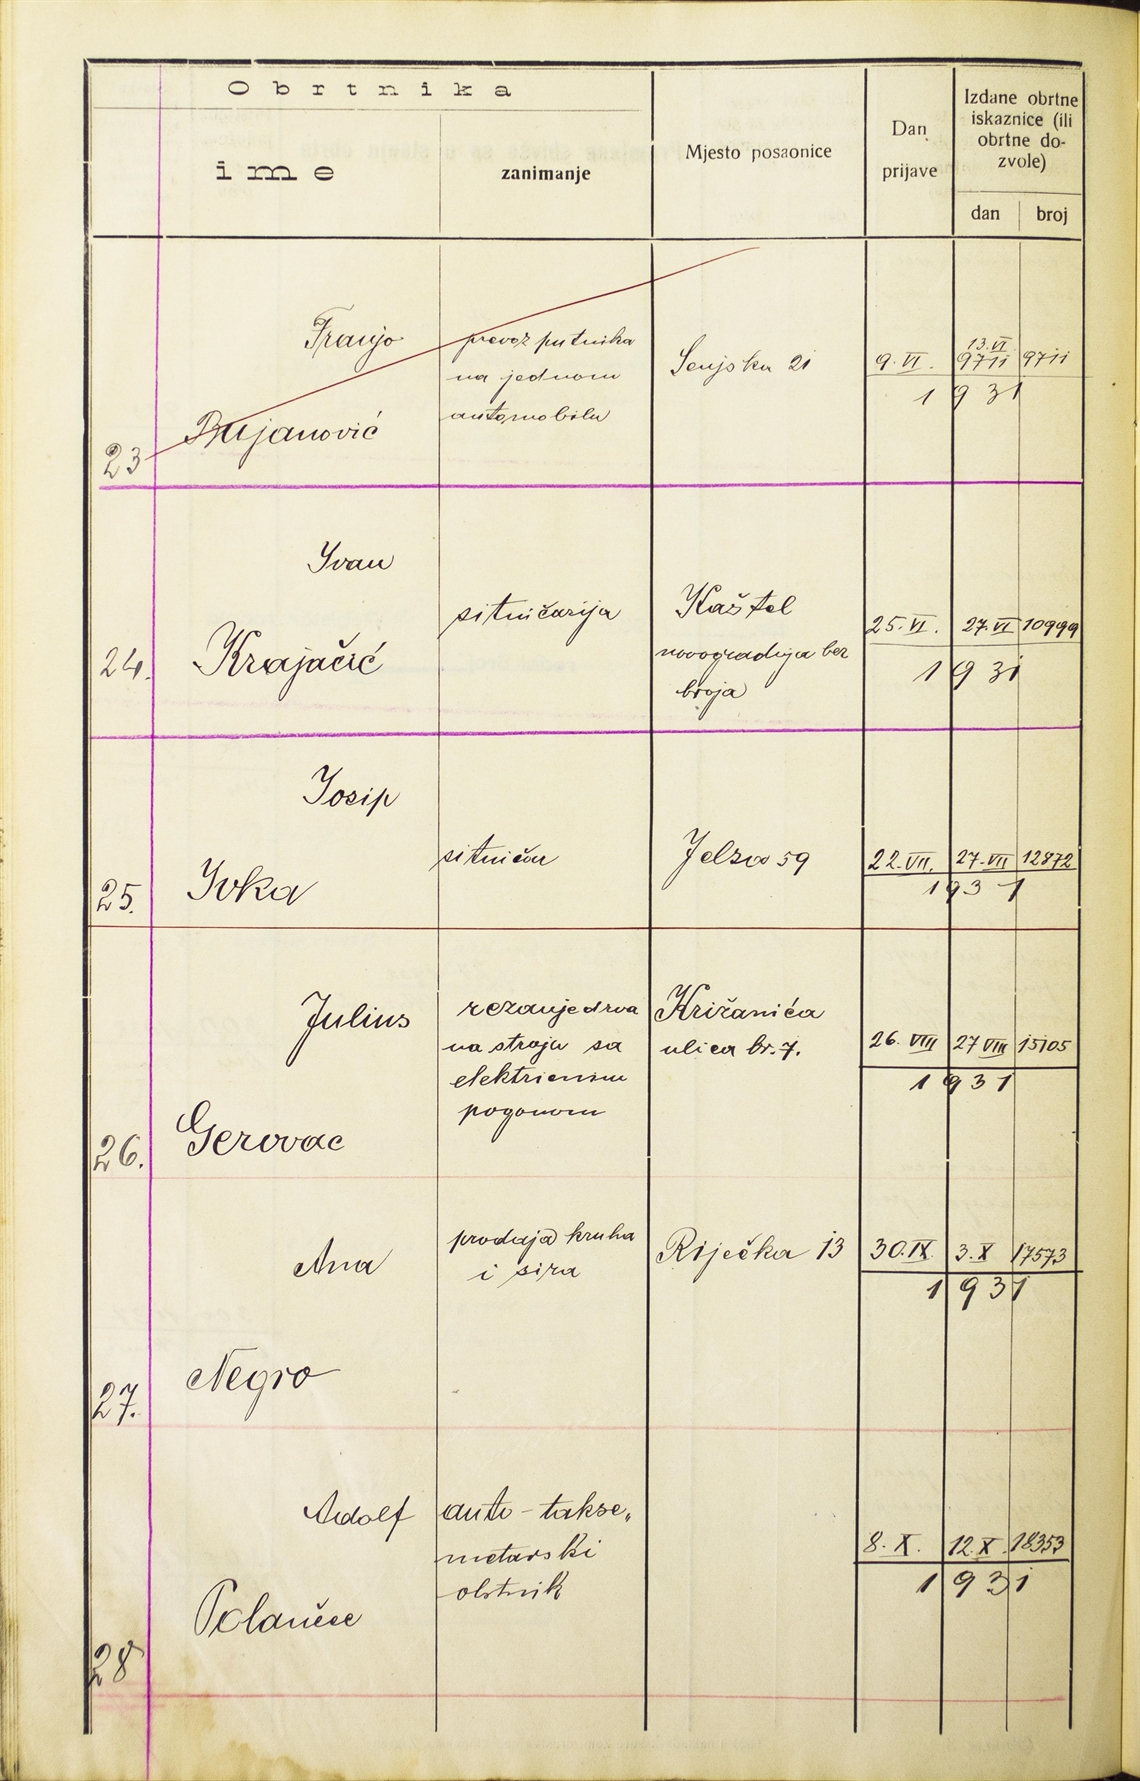 Obrtnika
ime
zanimanje
Mjesto posaonice
Dan
prijave
Izdane obrtne
iskaznice (ili
obrtne do-
zvole)
dan broj
Franjo
Bujanović
23
prevoz putnika
na jednom
automobilu
Senjska 21
9. VI. 13. VI 9711 9711
1931
Ivan
Krajačić
24.
sitničarija
Kaštel
novogradnja bez
broja
25. VI. 27. VI 10999
1931
Josip
Ivka
25.
sitničar
Jelsa 59
22. VII. 27. VII 12872
1931
Julius
Gerovac
26.
rezanje drva
na stroju sa
elektricnim
pogonom
Križanića
ulica br. 7.
26. VIII 27 VIII 15105
1931
Ana
Negro
27.
prodaja kruha
i sira
Riječka 13
30. IX. 3. X 17573
1931
Adolf
28
auto - takse„
metarski
obrtnik
8. X. 12. X. 18353
1931